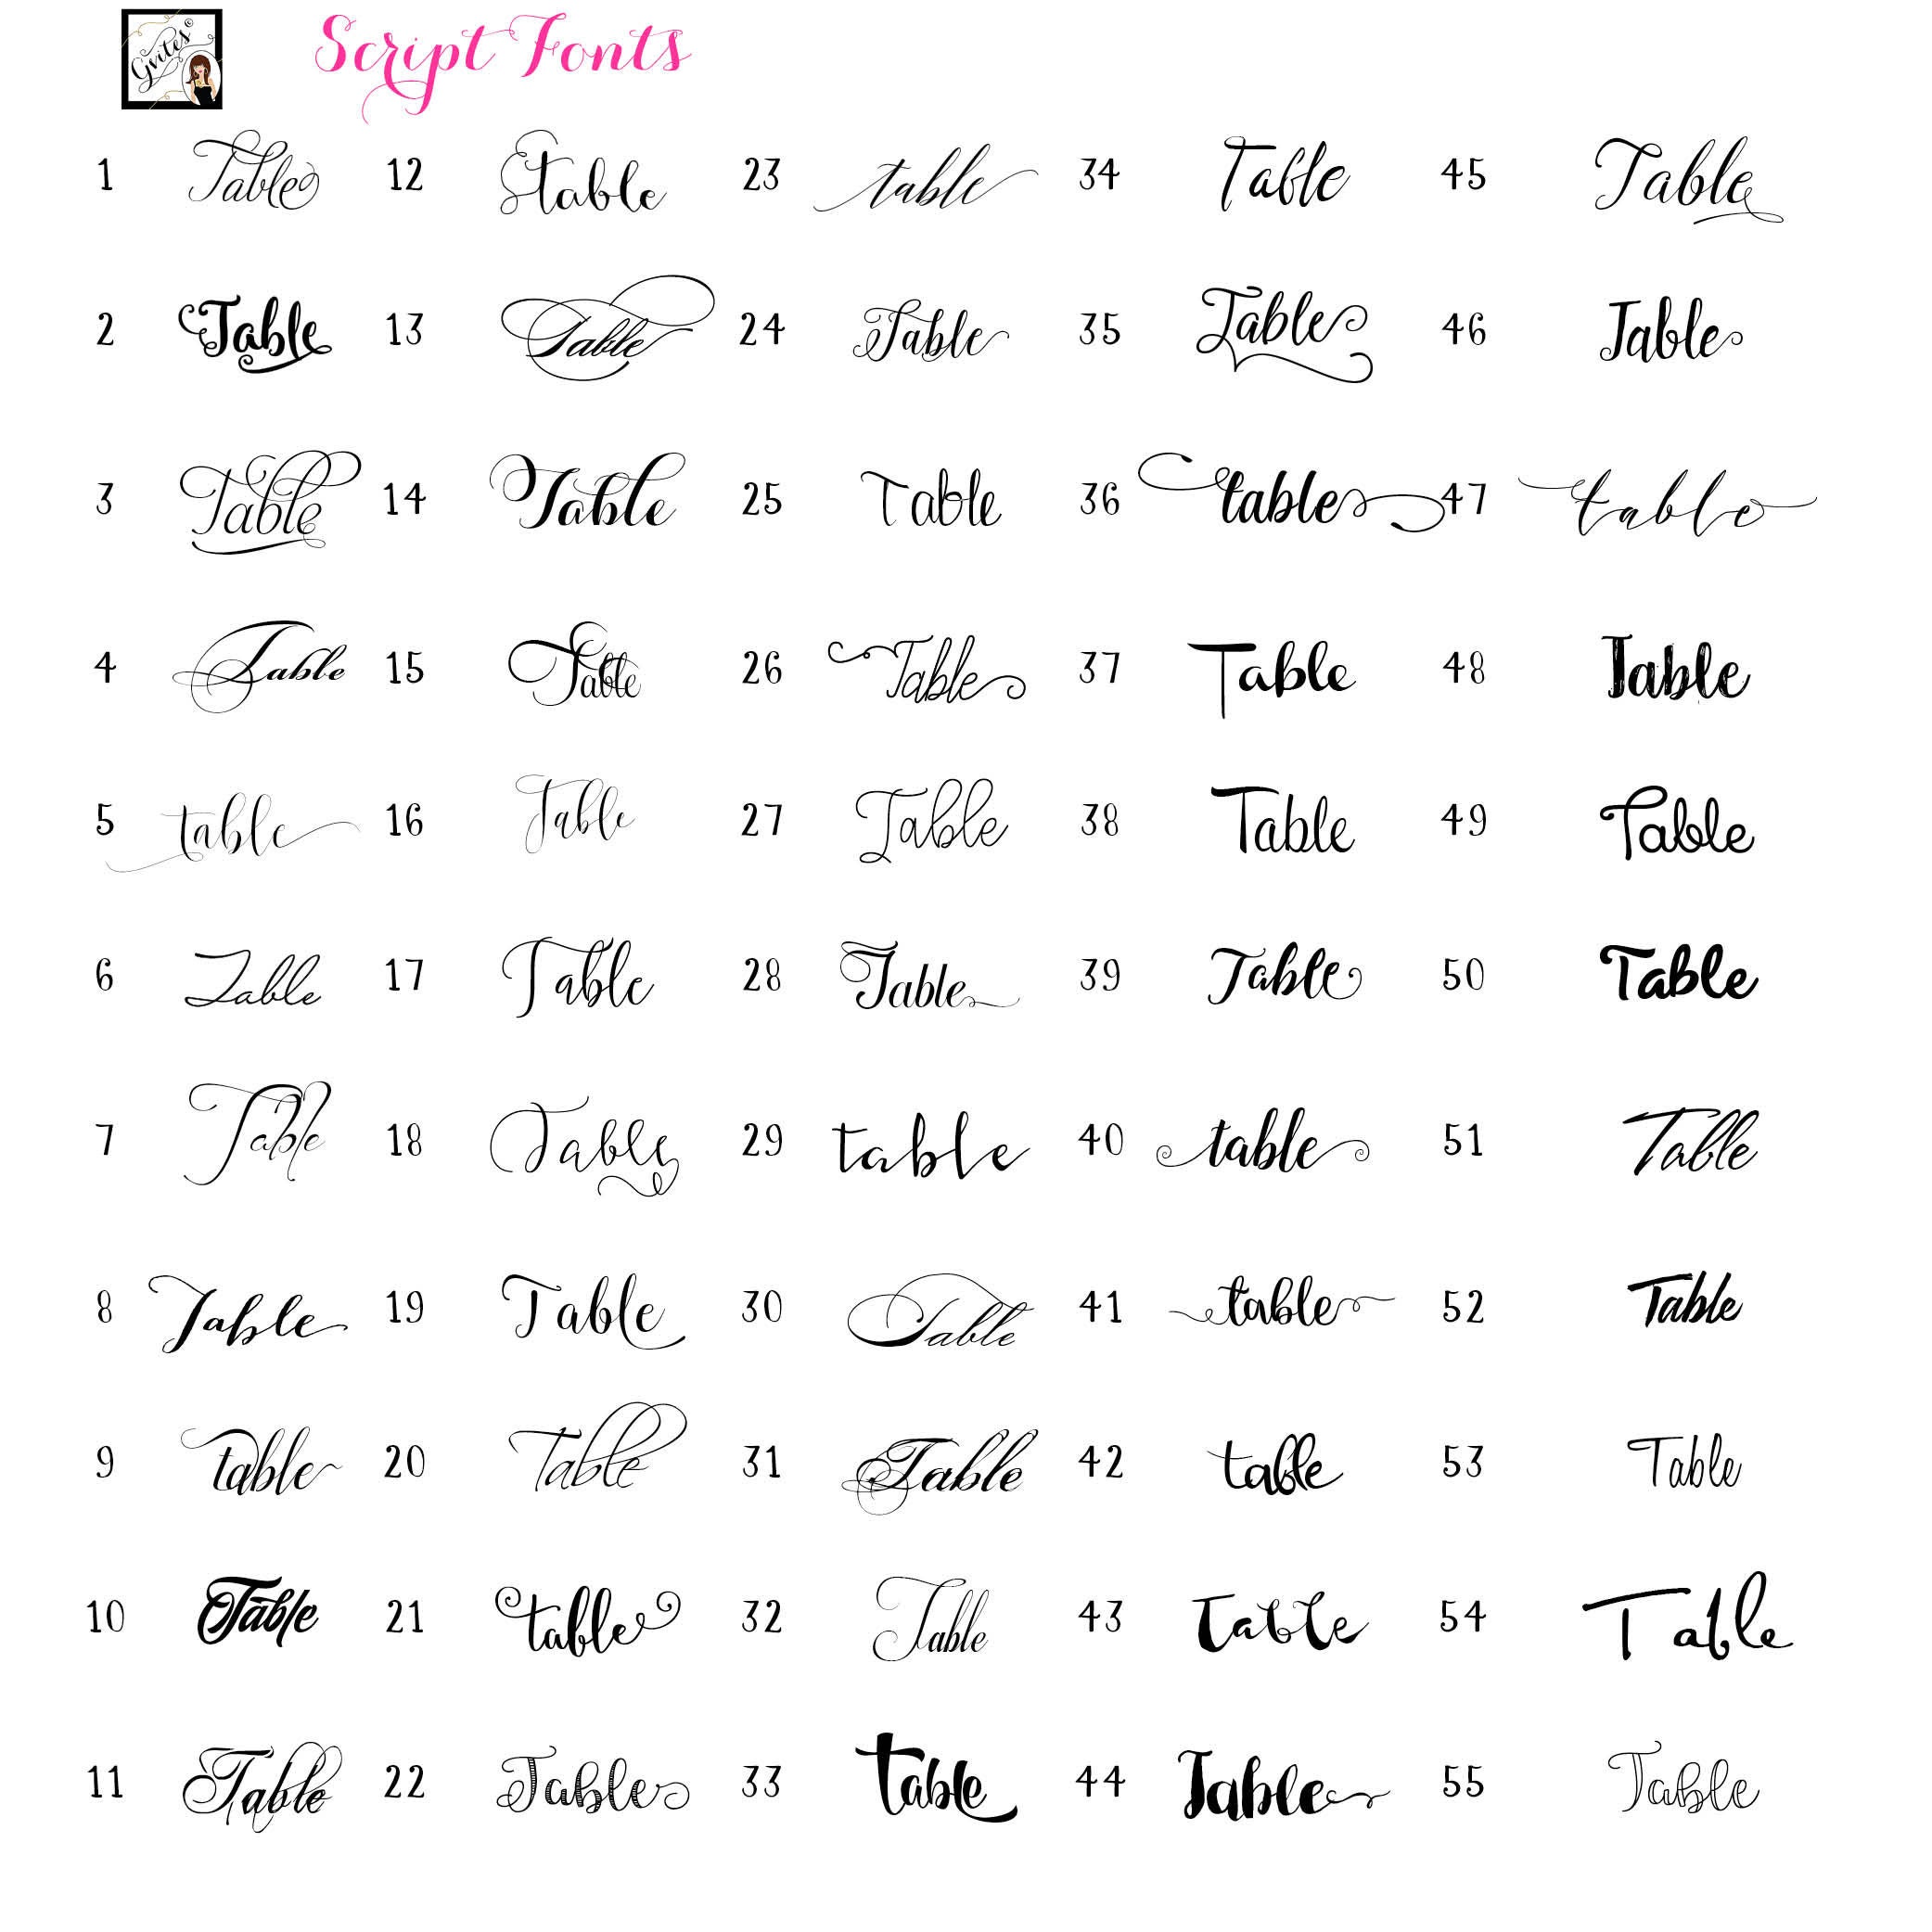 Gvites©
Script Fonts
1 Table 12 table 23 table 34 Table 45 Table
2 Table 13 Table 24 Table 35 Table 46 Table
3 Table 14 Table 25 Table 36 table 47 table
4 Table 15 Table 26 Table 37 Table 48 Table
5 table 16 Table 27 Table 38 Table 49 Table
6 Table 17 Table 28 Table 39 Table 50 Table
7 Table 18 Table 29 table 40 table 51 Table
8 Table 19 Table 30 Table 41 table 52 Table
9 table 20 Table 31 Table 42 table 53 Table
10 Table 21 table 32 Table 43 Table 54 Table
11 Table 22 Table 33 table 44 Table 55 Table